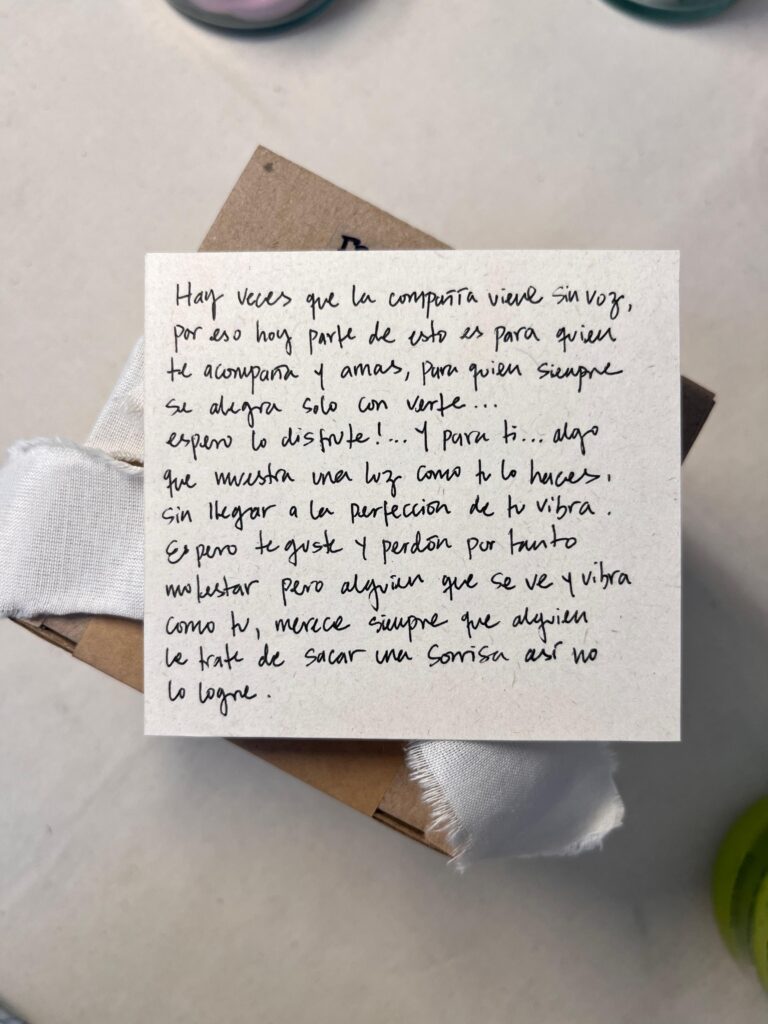 Hay veces que la compañía viene sin voz,
por eso hoy parte de esto es para quien
te acompaña y amas, para quien siempre
se alegra solo con verte...
espero lo disfrute!... Y para ti... algo
que muestra una luz como tu lo haces,
sin llegar a la perfección de tu vibra.
Espero te guste y perdón por tanto
molestar pero alguien que se ve y vibra
como tu, merece siempre que alguien
le trate de sacar una sonrisa así no
lo logre.